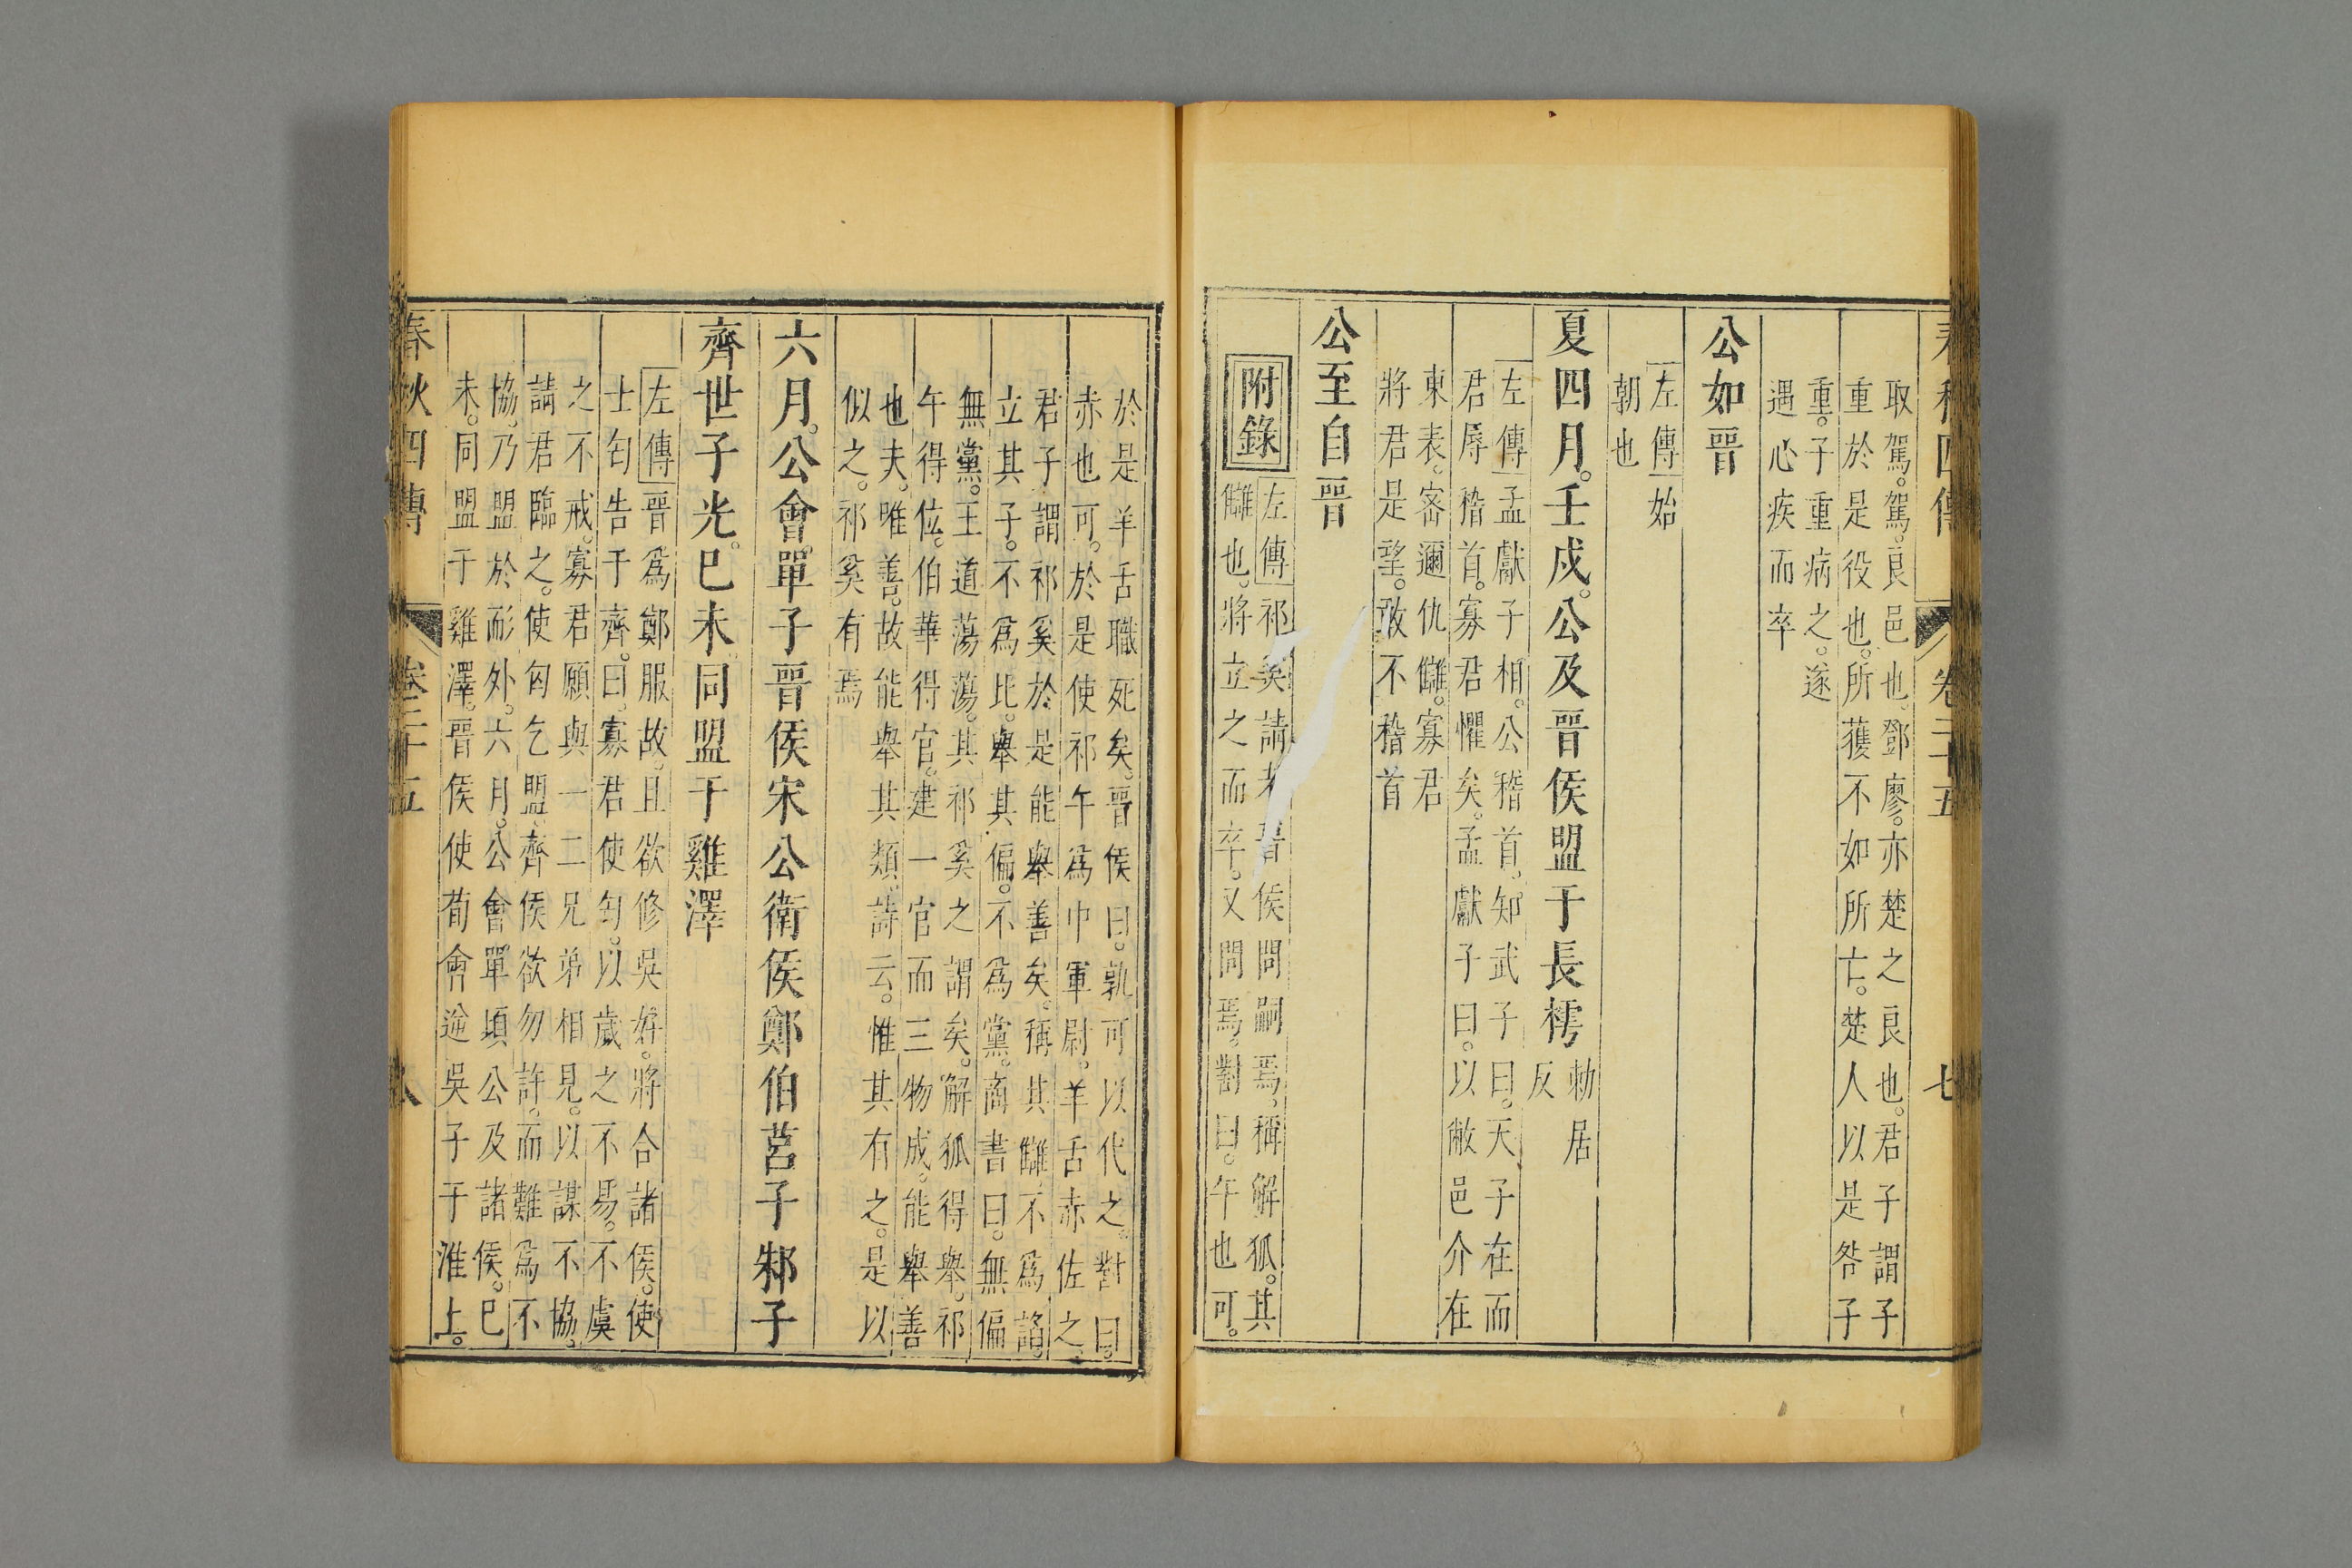 春秋四傳 卷二十五 七
取駕。駕。良邑也。鄧廖。亦楚之良也。君子謂子
重於是役也。所獲不如所亡。楚人以是咎子
重。子重病之。遂
遇心疾而卒
公如晉
左傳始
朝也
夏四月。壬戌。公及晉侯盟于長樗勑居
反
左傳孟獻子相。公稽首。知武子曰。天子在而
君辱稽首。寡君懼矣。孟獻子曰。以敝邑介在
東表。密邇仇讎。寡君
將君是望。敢不稽首
公至自晉
附錄
左傳祁奚請老晉侯問嗣焉。稱解狐。其
讎也。將立之而卒。又問焉。對曰。午也可。
於是羊舌職死矣。晉侯曰。孰可以代之。對曰。
赤也可。於是使祁午爲中軍尉。羊舌赤佐之。
君子謂祁奚於是能舉善矣。稱其讎。不爲諂。
立其子。不爲比。舉其偏。不爲黨。商書曰。無偏
無黨。王道蕩蕩。其祁奚之謂矣。解狐得舉。祁
午得位。伯華得官。建一官而三物成。能舉善
也夫。唯善。故能舉其類。詩云。惟其有之。是以
似之。祁奚有焉
六月。公會單子晉侯宋公衛侯鄭伯莒子邾子
齊世子光。巳未。同盟于雞澤
左傳晉爲鄭服故。且欲修吳好。將合諸侯。使
士匄告于齊。曰。寡君使匄。以歲之不易。不虞
之不戒。寡君願與一二兄弟相見。以謀不協。
請君臨之。使匄乞盟。齊侯欲勿許。而難爲不
協。乃盟於耏外。六月。公會單頃公及諸侯。巳
未。同盟于雞澤。晉侯使荀會逆吳子于淮上。
春秋四傳 卷二十五 八